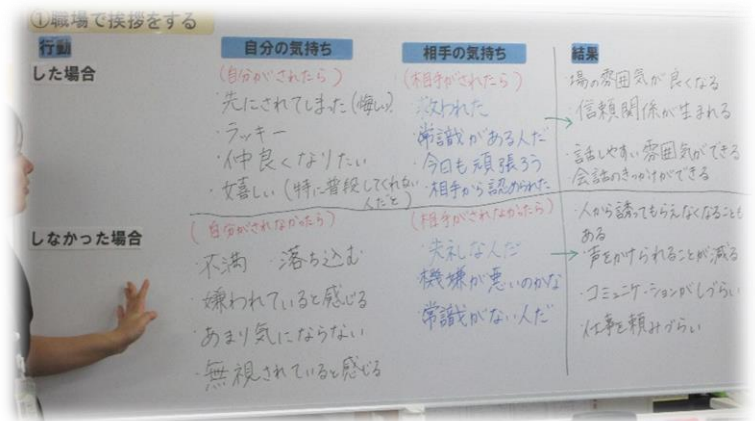 ①職場で挨拶をする
行動
自分の気持ち
相手の気持ち
結果
した場合
(自分がされたら)
・先にされてしまった(悔しい)
・ラッキー
・仲良くなりたい
・嬉しい(特に普段してくれない
人だと)
(相手がされたら)
・救われた
・常識がある人だ
・今日も頑張ろう
・相手から認められた
・場の雰囲気が良くなる
・信頼関係が生まれる
・話しやすい雰囲気ができる
・会話のきっかけができる
しなかった場合
(自分がされなかったら)
・不満 ・落ち込む
・嫌われていると感じる
・あまり気にならない
・無視されていると感じる
(相手がされなかったら)
・失礼な人だ
・機嫌が悪いのかな
・常識がない人だ
・人から誘ってもらえなくなることも
ある
・声をかけられることが減る
・コミュニケーションがしづらい
・仕事を頼みづらい